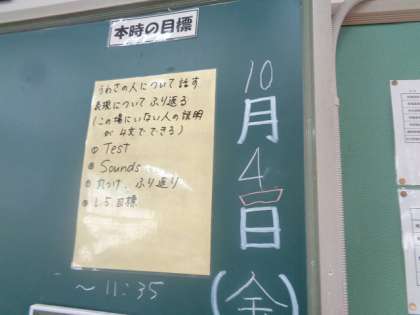 本時の目標
うわさの人について話す
表現についてふり返る
(この場にいない人の説明
が4文でできる)
① Test
② Sounds
③ 丸つけ、ふり返り
④ L5目標
～11:35
10
月
4
日
(金)